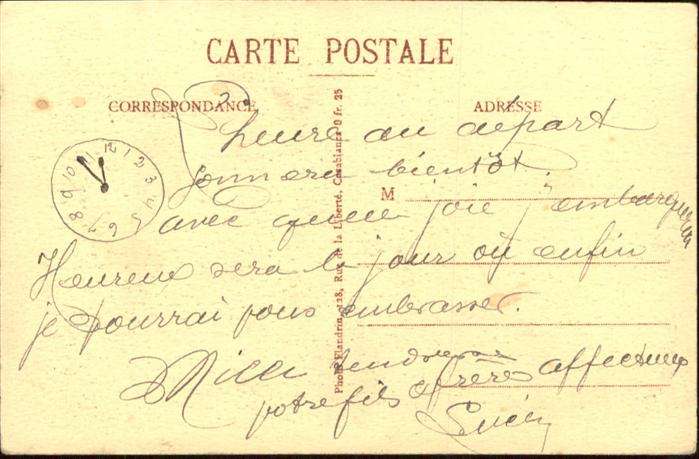 CARTE POSTALE
CORRESPONDANCE
ADRESSE
L'heure du départ
sonnera bientôt.
M
avec quelle joie j'embarquerai
Heureux sera le jour où enfin
je pourrai vous embrasser.
Mille tendresses
votre fils et frère affectueux
Lucien
Photo Flandrin, 128, Rue de la Liberté, Casablanca 0 fr. 25
12 1 2 3 4 5 6 7 8 9 10 11